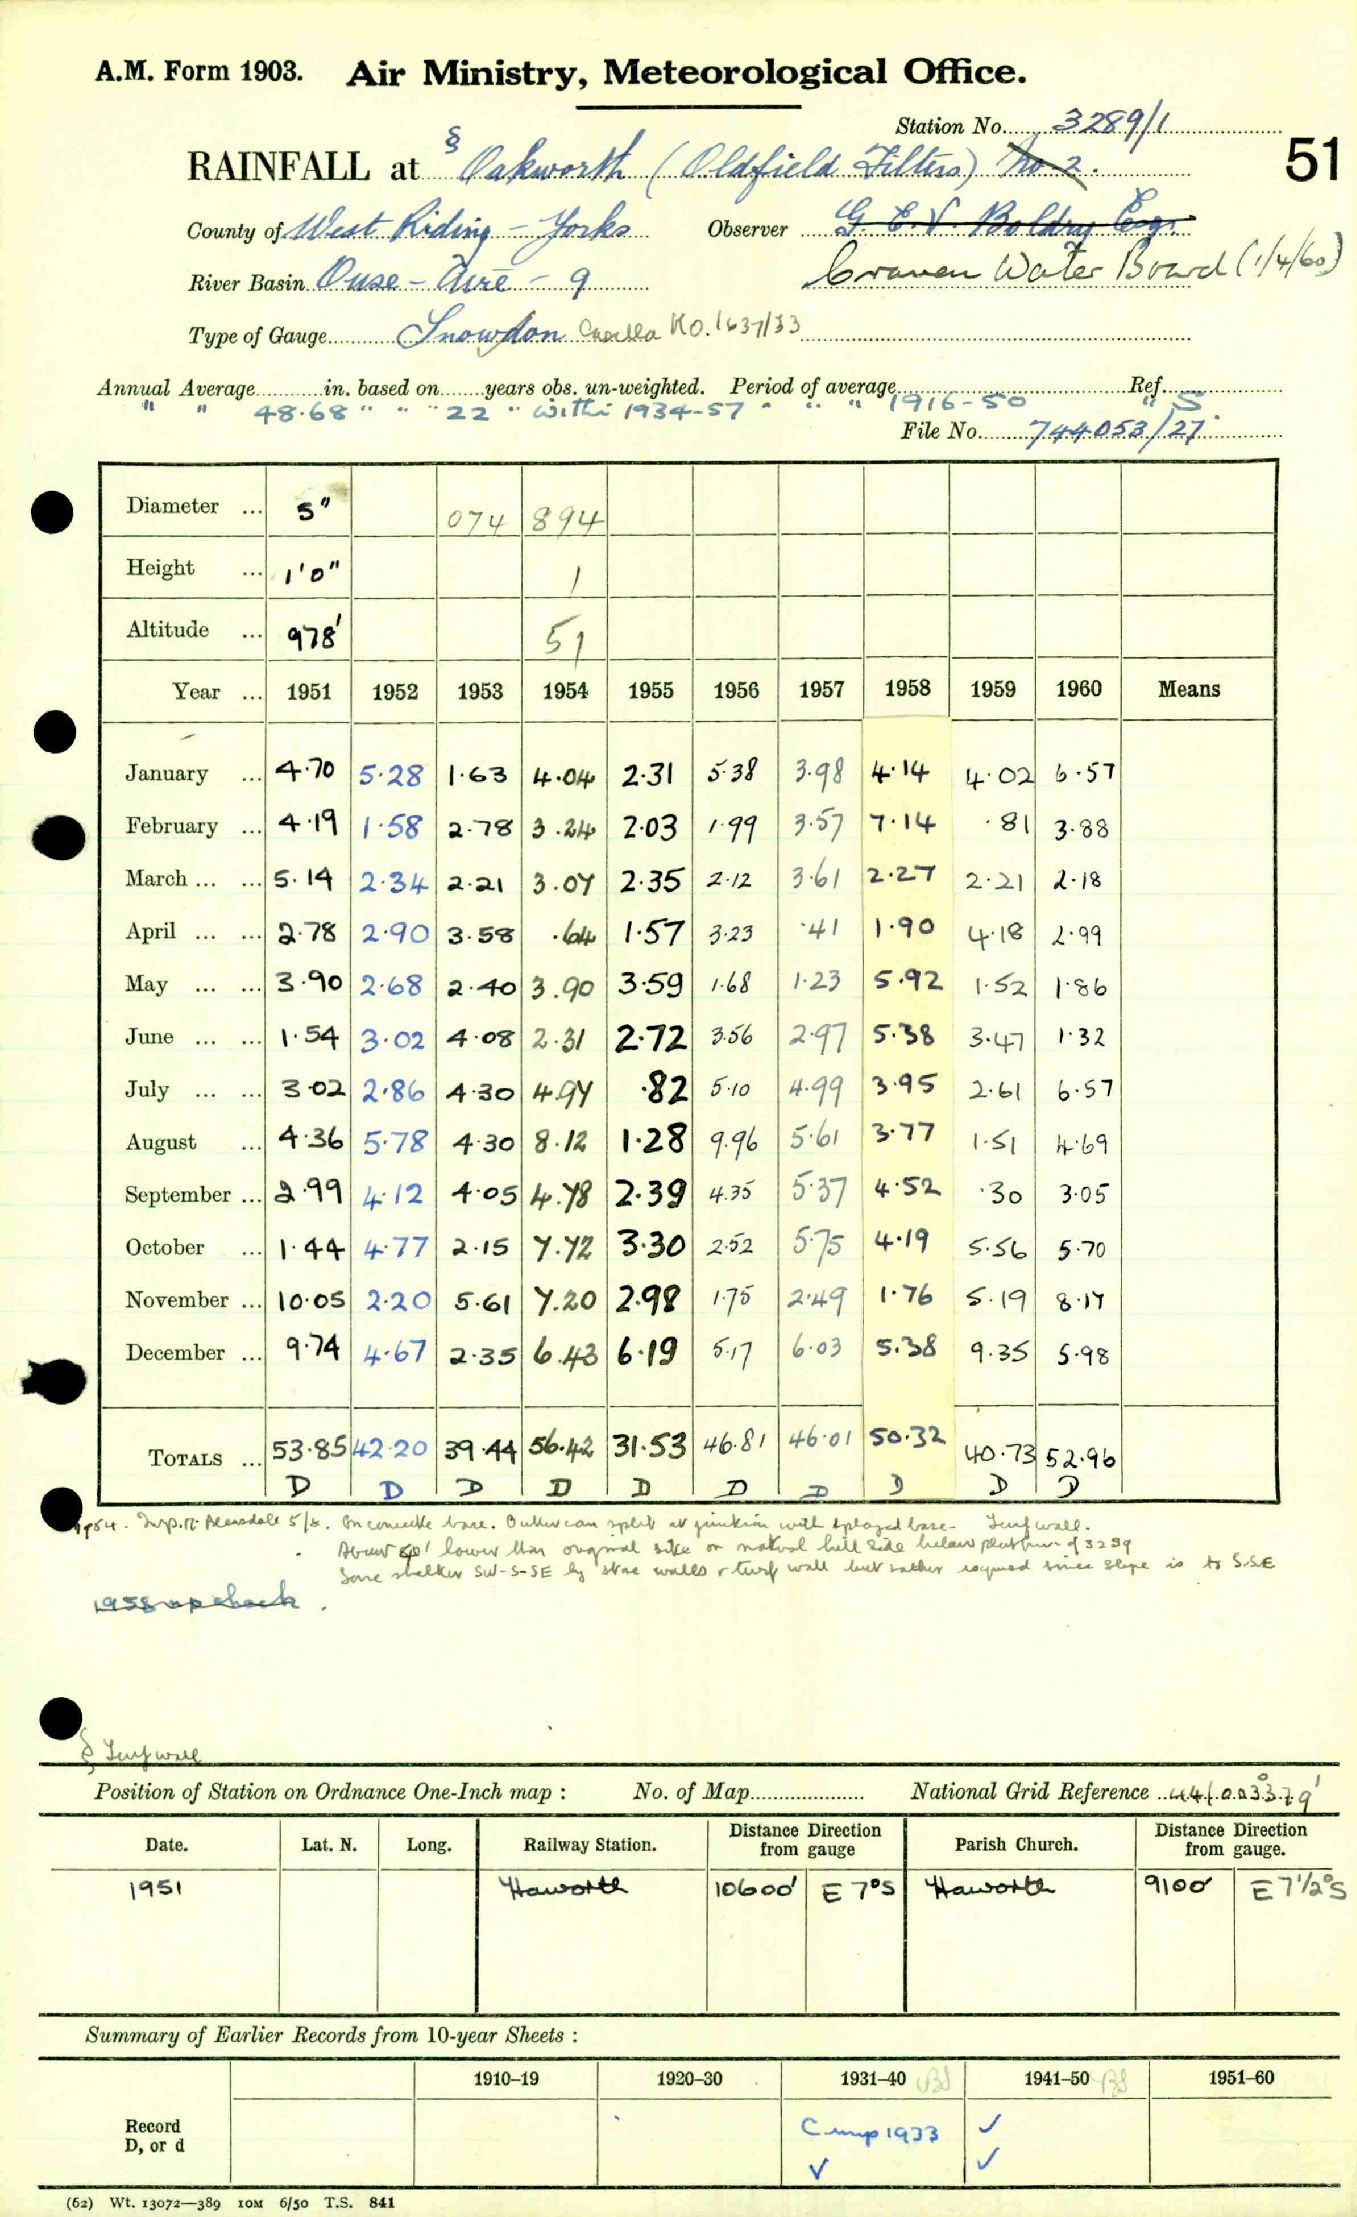 A.M. Form 1903. Air Ministry, Meteorological Office.
Station No. 3289/1
RAINFALL at § Oakworth (Oldfield Filters) No 2. 51
County of West Riding - Yorks Observer G. E. V. Boldry Esq.
River Basin Ouse - Aire - 9 Craven Water Board (1/4/60)
Type of Gauge Snowdon Casella No. 1637/33
Annual Average in. based on years obs. un-weighted. Period of average Ref.
" " 48.68 " " " 22 " within 1934-57 " " " 1916-50 " S.
File No. 744053/27
Diameter ... 5" 074 894
Height ... 1'0" 1
Altitude ... 978' 51
Year ... 1951 1952 1953 1954 1955 1956 1957 1958 1959 1960 Means
January ... 4.70 5.28 1.63 4.04 2.31 5.38 3.98 4.14 4.02 6.57
February ... 4.19 1.58 2.78 3.24 2.03 1.99 3.57 7.14 .81 3.88
March ... ... 5.14 2.34 2.21 3.07 2.35 2.12 3.61 2.27 2.21 2.18
April ... ... 2.78 2.90 3.58 .64 1.57 3.23 .41 1.90 4.18 2.99
May ... ... 3.90 2.68 2.40 3.90 3.59 1.68 1.23 5.92 1.52 1.86
June ... ... 1.54 3.02 4.08 2.31 2.72 3.56 2.97 5.38 3.47 1.32
July ... ... 3.02 2.86 4.30 4.97 .82 5.10 4.99 3.95 2.61 6.57
August ... 4.36 5.78 4.30 8.12 1.28 9.96 5.61 3.77 1.51 4.69
September ... 2.99 4.12 4.05 4.78 2.39 4.35 5.37 4.52 .30 3.05
October ... 1.44 4.77 2.15 7.72 3.30 2.52 5.75 4.19 5.56 5.70
November ... 10.05 2.20 5.61 7.20 2.98 1.75 2.49 1.76 5.19 8.17
December ... 9.74 4.67 2.35 6.43 6.19 5.17 6.03 5.38 9.35 5.98
TOTALS ... 53.85 42.20 39.44 56.42 31.53 46.81 46.01 50.32 40.73 52.96
D D D D D D D D D D
1954. Insp. 5/8. On concrete base. Outer can split at junction with splayed base - Turf wall.
About lower than original site on natural hill side below platform of 3289
Some shelter SW-S-SE by stone walls & turf wall but rather required since slope is to S.SE
1958 no check.
§ Turf wall
Position of Station on Ordnance One-Inch map : No. of Map National Grid Reference 44/003379
Date. Lat. N. Long. Railway Station. Distance from Direction gauge Parish Church. Distance from Direction gauge.
1951 Haworth 10600' E 7°S Haworth 9100' E 7½°S
Summary of Earlier Records from 10-year Sheets :
1910–19 1920–30 1931–40 1941–50 1951–60
Record Cmp 1933 ✓
D, or d ✓ ✓
(62) Wt. 13072—389 10M 6/50 T.S. 841